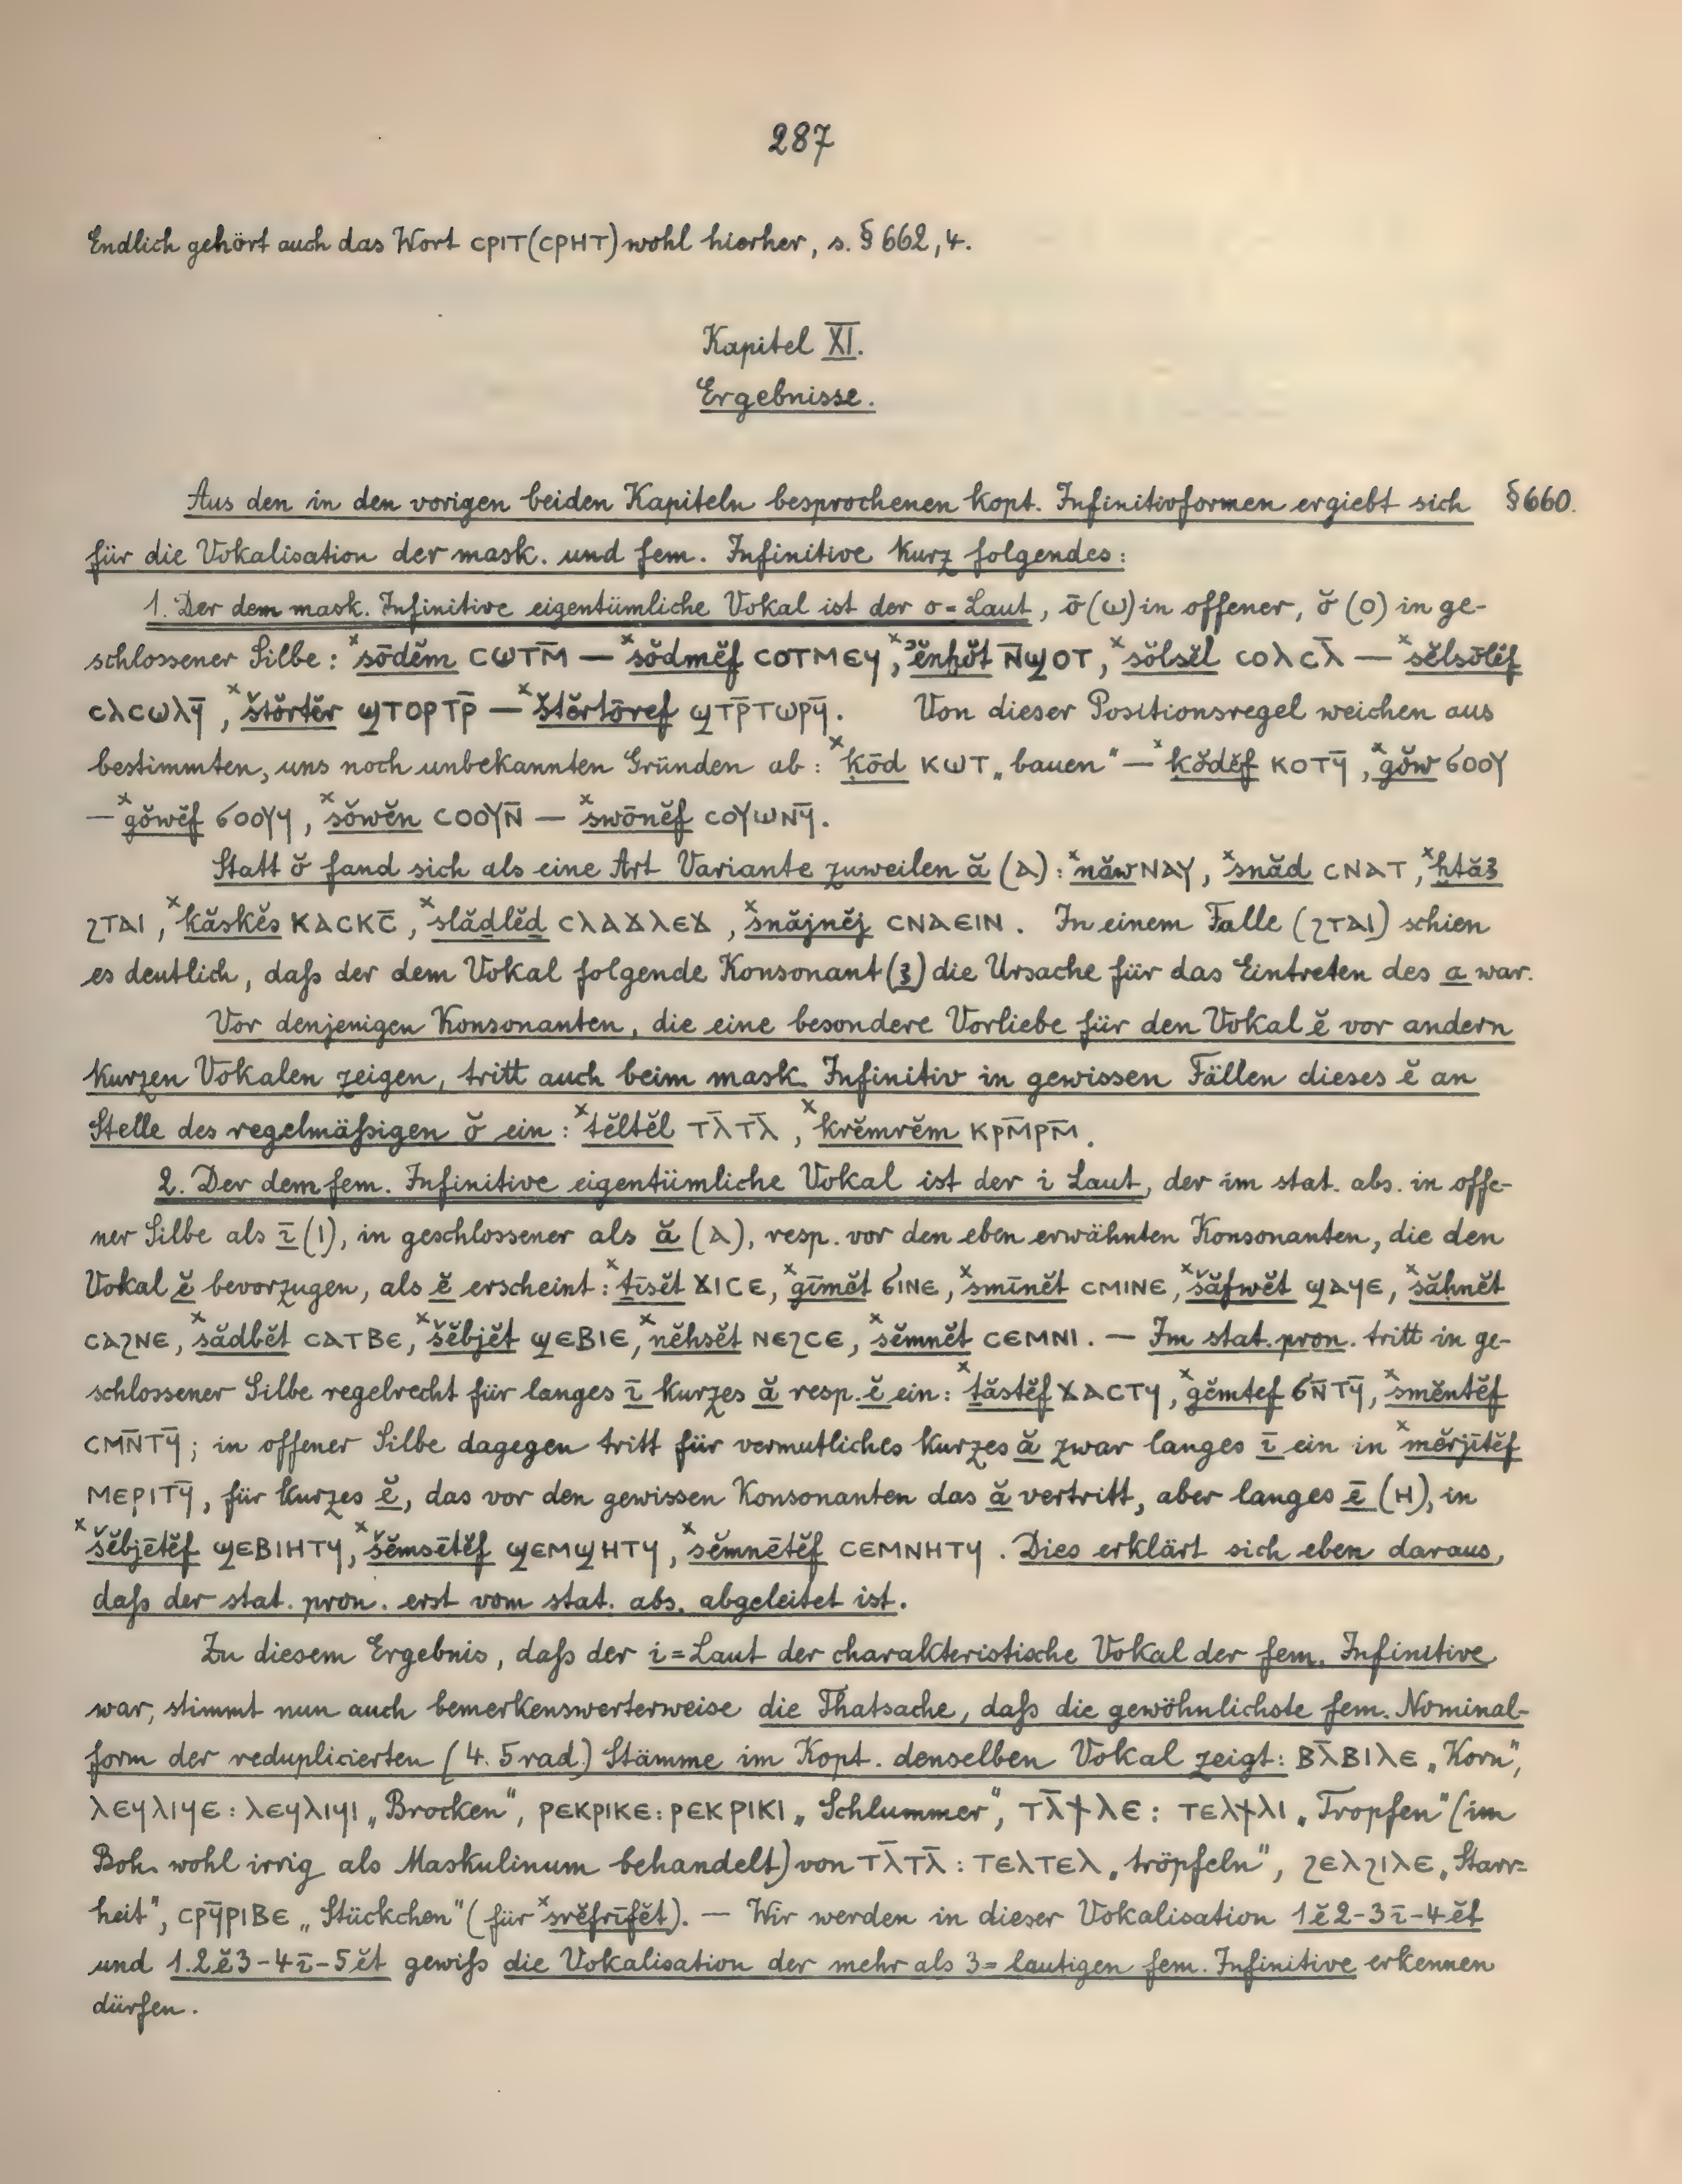 287
Endlich gehört auch das Wort ⲥⲣⲓⲧ(ⲥⲣⲏⲧ) wohl hierher, s. § 662, 4.
Kapitel XI.
Ergebnisse.
Aus den in den vorigen beiden Kapiteln besprochenen kopt. Infinitivformen ergiebt sich § 660.
für die Vokalisation der mask. und fem. Infinitive kurz folgendes:
1. Der dem mask. Infinitive eigentümliche Vokal ist der o=Laut, ō (ⲱ) in offener, ŏ (ⲟ) in ge-
schlossener Silbe: ˣsōdĕm ⲥⲱⲧⲙ̄ — ˣsŏdmĕf ⲥⲟⲧⲙⲉϥ, ˣʾĕnḫŏt ⲛ̄ϣⲟⲧ, ˣsŏlsĕl ⲥⲟⲗⲥⲗ̄ — ˣsĕlsōlĕf
ⲥⲗⲥⲱⲗϥ̄, ˣštŏrtĕr ϣⲧⲟⲣⲧⲣ̄ — ˣštĕrtōref ϣⲧⲣ̄ⲧⲱⲣϥ̄. Von dieser Positionsregel weichen aus
bestimmten, uns noch unbekannten Gründen ab: ˣḳōd ⲕⲱⲧ „bauen“ — ˣḳŏdĕf ⲕⲟⲧϥ̄, ˣgŏw ϭⲟⲟⲩ
— ˣgŏwĕf ϭⲟⲟⲩϥ, ˣsŏwĕn ⲥⲟⲟⲩⲛ̄ — ˣswōnĕf ⲥⲟⲩⲱⲛϥ̄.
Statt ŏ fand sich als eine Art Variante zuweilen ă (ⲁ): ˣnăw ⲛⲁⲩ, ˣsnăd ⲥⲛⲁⲧ, ˣḥtăꜣ
ϩⲧⲁⲓ, ˣkăskĕs ⲕⲁⲥⲕⲥ̄, ˣslăḏlĕḏ ⲥⲗⲁϫⲗⲉϫ, ˣsnăjnĕj ⲥⲛⲁⲉⲓⲛ. In einem Falle (ϩⲧⲁⲓ) schien
es deutlich, daß der dem Vokal folgende Konsonant (ꜣ) die Ursache für das Eintreten des a war.
Vor denjenigen Konsonanten, die eine besondere Vorliebe für den Vokal ĕ vor andern
kurzen Vokalen zeigen, tritt auch beim mask. Infinitiv in gewissen Fällen dieses ĕ an
Stelle des regelmäßigen ŏ ein: ˣtĕltĕl ⲧⲗ̄ⲧⲗ̄, ˣkrĕmrĕm ⲕⲣⲙ̄ⲣⲙ̄.
2. Der dem fem. Infinitive eigentümliche Vokal ist der i Laut, der im stat. abs. in offe-
ner Silbe als ī (ⲓ), in geschlossener als ă (ⲁ), resp. vor den eben erwähnten Konsonanten, die den
Vokal ĕ bevorzugen, als ĕ erscheint: ˣṯīsĕt ϫⲓⲥⲉ, ˣgīmĕt ϭⲓⲛⲉ, ˣsmīnĕt ⲥⲙⲓⲛⲉ, ˣšăfwĕt ϣⲁϥⲉ, ˣsăḥnĕt
ⲥⲁϩⲛⲉ, ˣsădbĕt ⲥⲁⲧⲃⲉ, ˣšĕbjĕt ϣⲉⲃⲓⲉ, ˣnĕhsĕt ⲛⲉϩⲥⲉ, ˣsĕmnĕt ⲥⲉⲙⲛⲓ. — Im stat. pron. tritt in ge-
schlossener Silbe regelrecht für langes ī kurzes ă resp. ĕ ein: ˣṯăstĕf ϫⲁⲥⲧϥ, ˣgĕmtef ϭⲛ̄ⲧϥ̄, ˣsmĕntĕf
ⲥⲙⲛ̄ⲧϥ̄; in offener Silbe dagegen tritt für vermutliches kurzes ă zwar langes ī ein in ˣmĕrjītĕf
ⲙⲉⲣⲓⲧϥ̄, für kurzes ĕ, das vor den gewissen Konsonanten das ă vertritt, aber langes ē (ⲏ), in
ˣšĕbjētĕf ϣⲉⲃⲓⲏⲧϥ, ˣšĕmsētĕf ϣⲉⲙϣⲏⲧϥ, ˣsĕmnētĕf ⲥⲉⲙⲛⲏⲧϥ. Dies erklärt sich eben daraus,
daß der stat. pron. erst vom stat. abs. abgeleitet ist.
Zu diesem Ergebnis, daß der i=Laut der charakteristische Vokal der fem. Infinitive
war, stimmt nun auch bemerkenswerterweise die Thatsache, daß die gewöhnlichste fem. Nominal-
form der reduplicierten (4. 5rad.) Stämme im Kopt. denselben Vokal zeigt: ⲃⲗ̄ⲃⲓⲗⲉ „Korn“,
ⲗⲉϥⲗⲓϥⲉ : ⲗⲉϥⲗⲓϥⲓ „Brocken“, ⲣⲉⲕⲣⲓⲕⲉ : ⲣⲉⲕⲣⲓⲕⲓ „Schlummer“, ⲧⲗ̄ϯⲗⲉ : ⲧⲉⲗϯⲗⲓ „Tropfen“ (im
Boh. wohl irrig als Maskulinum behandelt) von ⲧⲗ̄ⲧⲗ̄ : ⲧⲉⲗⲧⲉⲗ „tröpfeln“, ϩⲉⲗϩⲓⲗⲉ „Starr=
heit“, ⲥⲣϥ̄ⲣⲓⲃⲉ „Stückchen“ (für ˣsrĕfrīfĕt). — Wir werden in dieser Vokalisation 1ĕ2-3ī-4ĕt
und 1.2ĕ3-4ī-5ĕt gewiß die Vokalisation der mehr als 3=lautigen fem. Infinitive erkennen
dürfen.